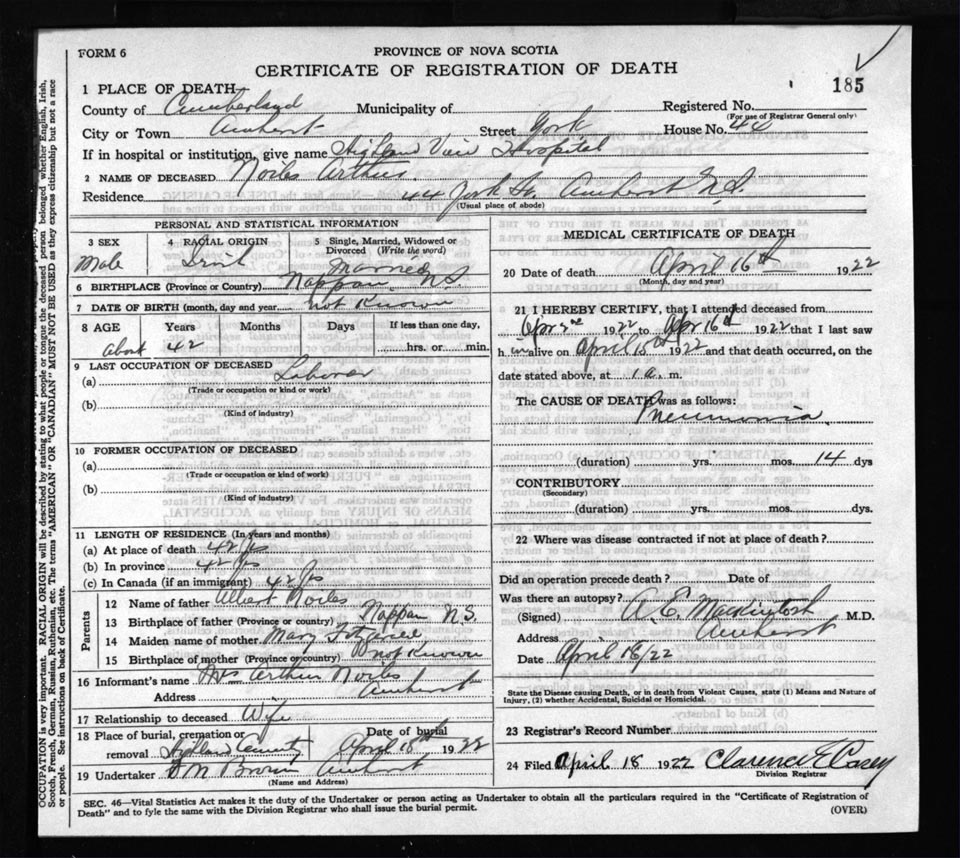 FORM 6
PROVINCE OF NOVA SCOTIA
CERTIFICATE OF REGISTRATION OF DEATH
185
1 PLACE OF DEATH
County of Cumberland Municipality of Registered No.
(For use of Registrar General only)
City or Town Amherst Street York House No. 44
If in hospital or institution, give name Highland View Hospital
2 NAME OF DECEASED Noiles Arthur
Residence 44 York St. Amherst N.S.
(Usual place of abode)
PERSONAL AND STATISTICAL INFORMATION
3 SEX
Male
4 RACIAL ORIGIN
Irish
5 Single, Married, Widowed or Divorced (Write the word)
Married
6 BIRTHPLACE (Province or Country) Nappan N.S.
7 DATE OF BIRTH (month, day and year) not Known
8 AGE Years Months Days If less than one day,
about 42 hrs. or min.
9 LAST OCCUPATION OF DECEASED
(a) Laborer
(Trade or occupation or kind or work)
(b)
(Kind of industry)
10 FORMER OCCUPATION OF DECEASED
(a)
(Trade or occupation or kind of work)
(b)
(Kind of industry)
11 LENGTH OF RESIDENCE (In years and months)
(a) At place of death 42 yrs
(b) In province 42 yrs
(c) In Canada (if an immigrant) 42 yrs
Parents
12 Name of father Albert Noiles
13 Birthplace of father (Province or country) Nappan N.S.
14 Maiden name of mother Mary
15 Birthplace of mother (Province or country) not Known
16 Informant's name Mrs Arthur Noiles
Address Amherst
17 Relationship to deceased Wife
18 Place of burial, cremation or removal Highland Date of burial April 18th 1922
19 Undertaker Brown Amherst
(Name and Address)
MEDICAL CERTIFICATE OF DEATH
20 Date of death April 16th 1922
(Month, day and year)
21 I HEREBY CERTIFY, that I attended deceased from
Apr 2nd 1922 to Apr 16th 1922 that I last saw
h im alive on April 15th 1922 and that death occurred, on the
date stated above, at 1 a. m.
The CAUSE OF DEATH was as follows:
Pneumonia
(duration) yrs. mos. 14 dys
CONTRIBUTORY
(Secondary)
(duration) yrs. mos. dys.
22 Where was disease contracted if not at place of death?
Did an operation precede death? Date of
Was there an autopsy?
(Signed) A. E. Mackintosh M.D.
Address Amherst
Date April 18/22
State the Disease causing Death, or in death from Violent Causes, state (1) Means and Nature of
Injury, (2) whether Accidental, Suicidal or Homicidal.
23 Registrar's Record Number
24 Filed April 18 1922 Clarence E Casey
Division Registrar
SEC. 46—Vital Statistics Act makes it the duty of the Undertaker or person acting as Undertaker to obtain all the particulars required in the "Certificate of Registration of
Death" and to fyle the same with the Division Registrar who shall issue the burial permit.
(OVER)
OCCUPATION is very important. RACIAL ORIGIN will be described by stating to what people or tongue the deceased person belonged whether English, Irish,
Scotch, French, German, Russian, Ruthenian, etc. The terms "AMERICAN" OR "CANADIAN" MUST NOT BE USED as they express citizenship but not a race
or people. See instructions on back of Certificate.